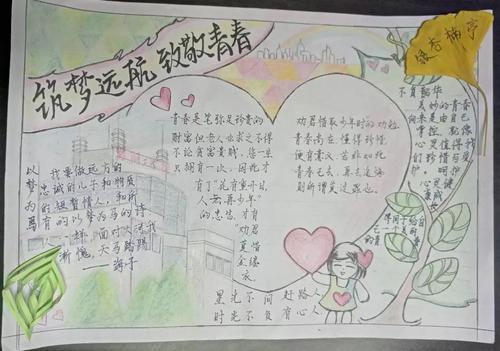 筑梦远航致敬青春
银杏摘亭
青春是笔弥足珍贵的
财富但老人也求之不得
不论贫富贵贱，您一生
只拥有一次，因此才
有了“花有重开日，
人无再少年”
的忠告，才有
劝君
莫惜
金缕
衣
劝君惜取少年时的劝勉
青春尚在懂得珍惜
便有意义
青春已去，再去追悔
不负韶华
美妙的青春
向来是由自己
掌控，就像我
们珍惜与呵
护
心灵健康
以梦为马
我要做远方的
忠诚的儿子和物质
的短暂情人，和所
有以梦为马的诗
人一样，面对大河我
惭愧，天马踢踢
——海子
星光不问赶路人
时光不负有心人